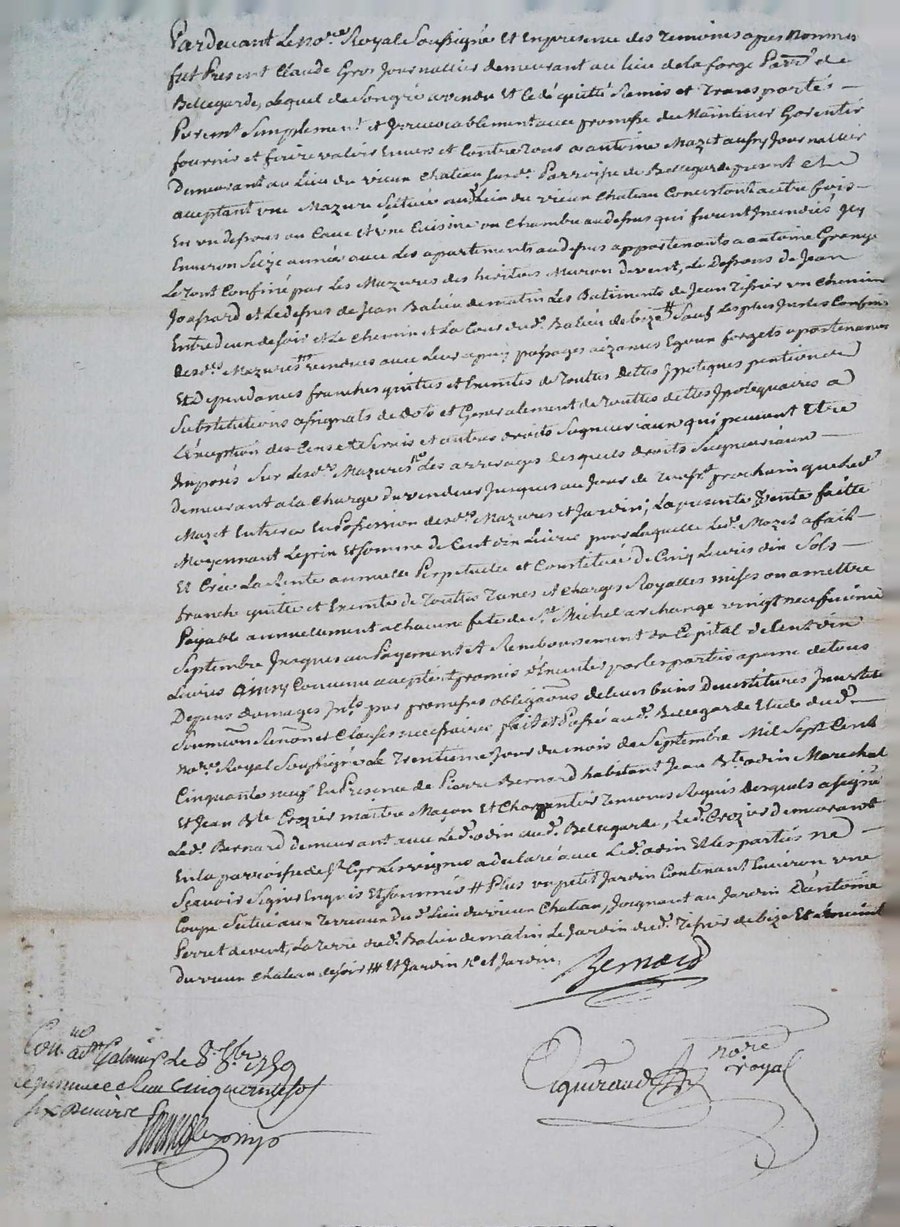 Pardevant Le No.re Royal Soussigné Et En presence des temoins apres Nommés
fut Present Claude Gros Journallier demeurant au lieu de la forge Parr.e de
Bellegarde, Lequel de Son gré a vendu Et cédé quitté Remis et Transportés
Purem.t Simplement et Irrevocablement avec promesse de Maintenir Garentir
fournir et faire valoir Envers et Contre Tous a antoine Mazet aussy Journallier
Demeurant au Lieu du vieux Chateau Susd. Parroisse de Bellegarde present Et
aceptant une Mazure Scituée aud. Lieu du vieux Chateau Concistant autre fois
En un dessous ou Cave Et une Cuisine ou Chambre au dessus qui furent Incendiés Il y a
Environ Seize années avec des apartements au dessus appartenants a antoine Grange
Le tout Confiné par Les Mazures des heritiers de vent, Le Dessous de Jean
Et Le dessus de Jean Baliée de matin Les Batiments de Jean Tissier un Chemin
Entre deux de soir et Le Chemin et La Cour dud. Baliée de bize # Sauf Les plus Justes Confins
Desd. Mazures vendües avec Leurs passages aizances apartenances
Et Dependances franches quittes et Exemtes de Toutes dettes Ypoteques pentions
Substitutions de dots et Generalement de Touttes dettes Ypotequaires a
L'exeption des Cens et Servis et autres droits Seigneuriaux qui peuvent Etre
Imposés Sur Lesd. Mazures Les arrerages desquels droits Seigneuriaux
Demeurant a la Charge du vendeur Jusques au Jour de prochain que Led.
Mazet Entrera En Possession desd. Mazures et Jardin; La presente Vente faitte
Moyennant Le prix Et Somme de Cent dix Livres pour Laquelle Led. Mazet a fait
Et Créé La Rente annuelle Perpetuelle et Constituée de Cinq Livres dix Sols
franche quitte et Exemtes de Toutes Taxes Et Charges Royalles mises ou a mettre
Payable annuellement a Chacune fete de S.t Michel archange vingt neufvieme
Septembre Jusques au Payement et Remboursement du Capital de Cent dix
Livres Ainsy Convenu accepté et promis D'executer par les parties a peine de tous
Depens Domages par promesses obligaons de leurs biens
Soumions Renonons Et Clauses necessaires fait et Passé aud. Bellegarde Etude dud.
No.re Royal Soussigné Le Trentieme Jour du mois de Septembre Mil Sept Cent
Cinquante neuf En Presence de Pierre Bernard habitant Jean B.te odin Marechal
Et Jean B.te Crozier maitre Maçon Et Charpentier Temoins Requis desquels a Signé
Led. Bernard Demeurant avec Led. odin aud. Bellegarde, Led. Crozier Demeurant
En la parroisse de S.t Cyr Les vignes a declaré avec Led. odin Et Les parties ne
Sçavoir Signer Enquis Et Sommés # Plus un petit Jardin Contenant Environ une
Coupe Scitué aux Terreaux dud. Lieu du vieux Chateau, Joignant au Jardin D'antoine
Perret de vent, La Terre dud. Baliée de matin Le Jardin dud. Tissier de bize Et
Du vieux Chateau de soir ## Et Jardin et Jardin,
Bernard
No.re
royal
Con.lé a S.t Galmier Le 8. 8bre 1759